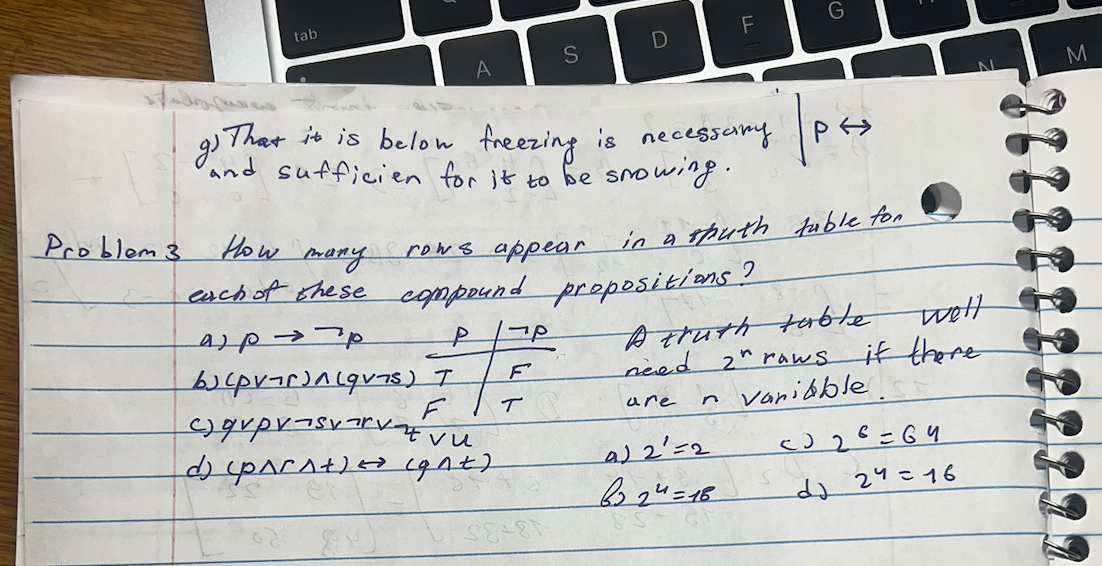 tab
A
S
D
F
G
N
M
g) That it is below freezing is necessary | p ↔
and sufficien for it to be snowing.
Problem 3 How many rows appear in a thuth table for
each of these compound propositions?
a) p → ¬p
b) (p∨¬r)∧(q∨¬s)
c) q∨p∨¬s∨¬r∨¬t∨u
d) (p∧r∧t) ↔ (q∧t)
p | ¬p
T | F
F | T
A truth table well
need 2ⁿ raws if there
are n variable.
a) 2¹=2 c) 2⁶=64
b) 2⁴=16 d) 2⁴=16